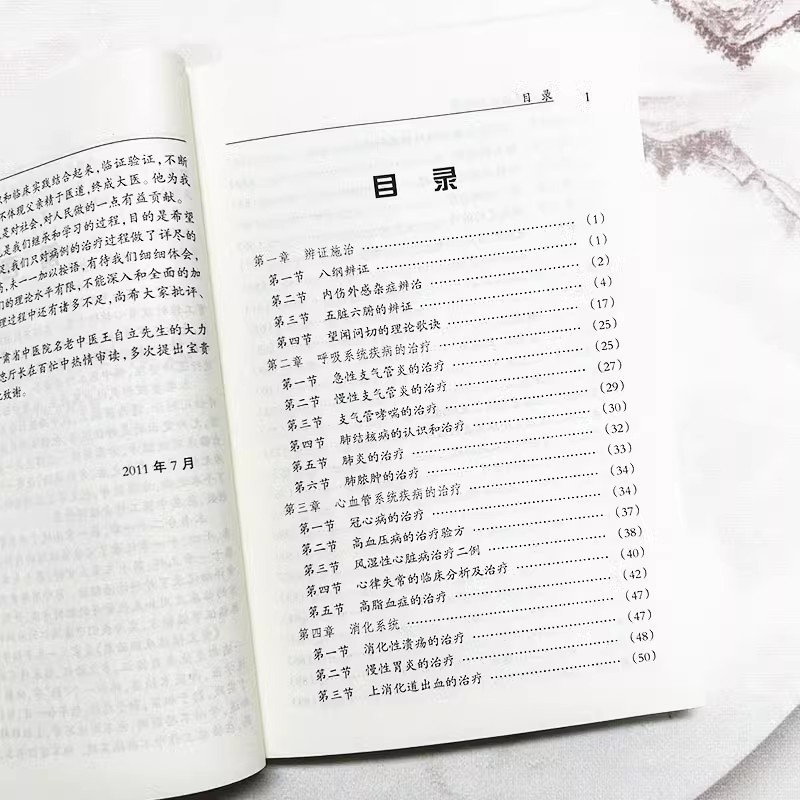 和临床实践结合起来，临证验证，不断
不体现父亲精于医道，终成大医。他为我
是对社会，对人民做的一点有益贡献。
也是我们继承和学习的过程，目的是希望
我们只对病例的治疗过程做了详尽的
未一一加以按语，有待我们细细体会，
们的理论水平有限，不能深入和全面的加
理过程中还有诸多不足，尚希大家批评、
肃省中医院名老中医王自立先生的大力
厅长在百忙中热情审读，多次提出宝贵
致谢。
2011年7月
目录 1
目 录
第一章 辨证施治 (1)
第一节 八纲辨证 (1)
第二节 内伤外感杂症辨治 (2)
第三节 五脏六腑的辨证 (4)
第四节 望闻问切的理论歌诀 (17)
第二章 呼吸系统疾病的治疗 (25)
第一节 急性支气管炎的治疗 (25)
第二节 慢性支气管炎的治疗 (27)
第三节 支气管哮喘的治疗 (29)
第四节 肺结核病的认识和治疗 (30)
第五节 肺炎的治疗 (32)
第六节 肺脓肿的治疗 (33)
第三章 心血管系统疾病的治疗 (34)
第一节 冠心病的治疗 (34)
第二节 高血压病的治疗验方 (37)
第三节 风湿性心脏病治疗二例 (38)
第四节 心律失常的临床分析及治疗 (40)
第五节 高脂血症的治疗 (42)
第四章 消化系统 (47)
第一节 消化性溃疡的治疗 (47)
第二节 慢性胃炎的治疗 (48)
第三节 上消化道出血的治疗 (50)